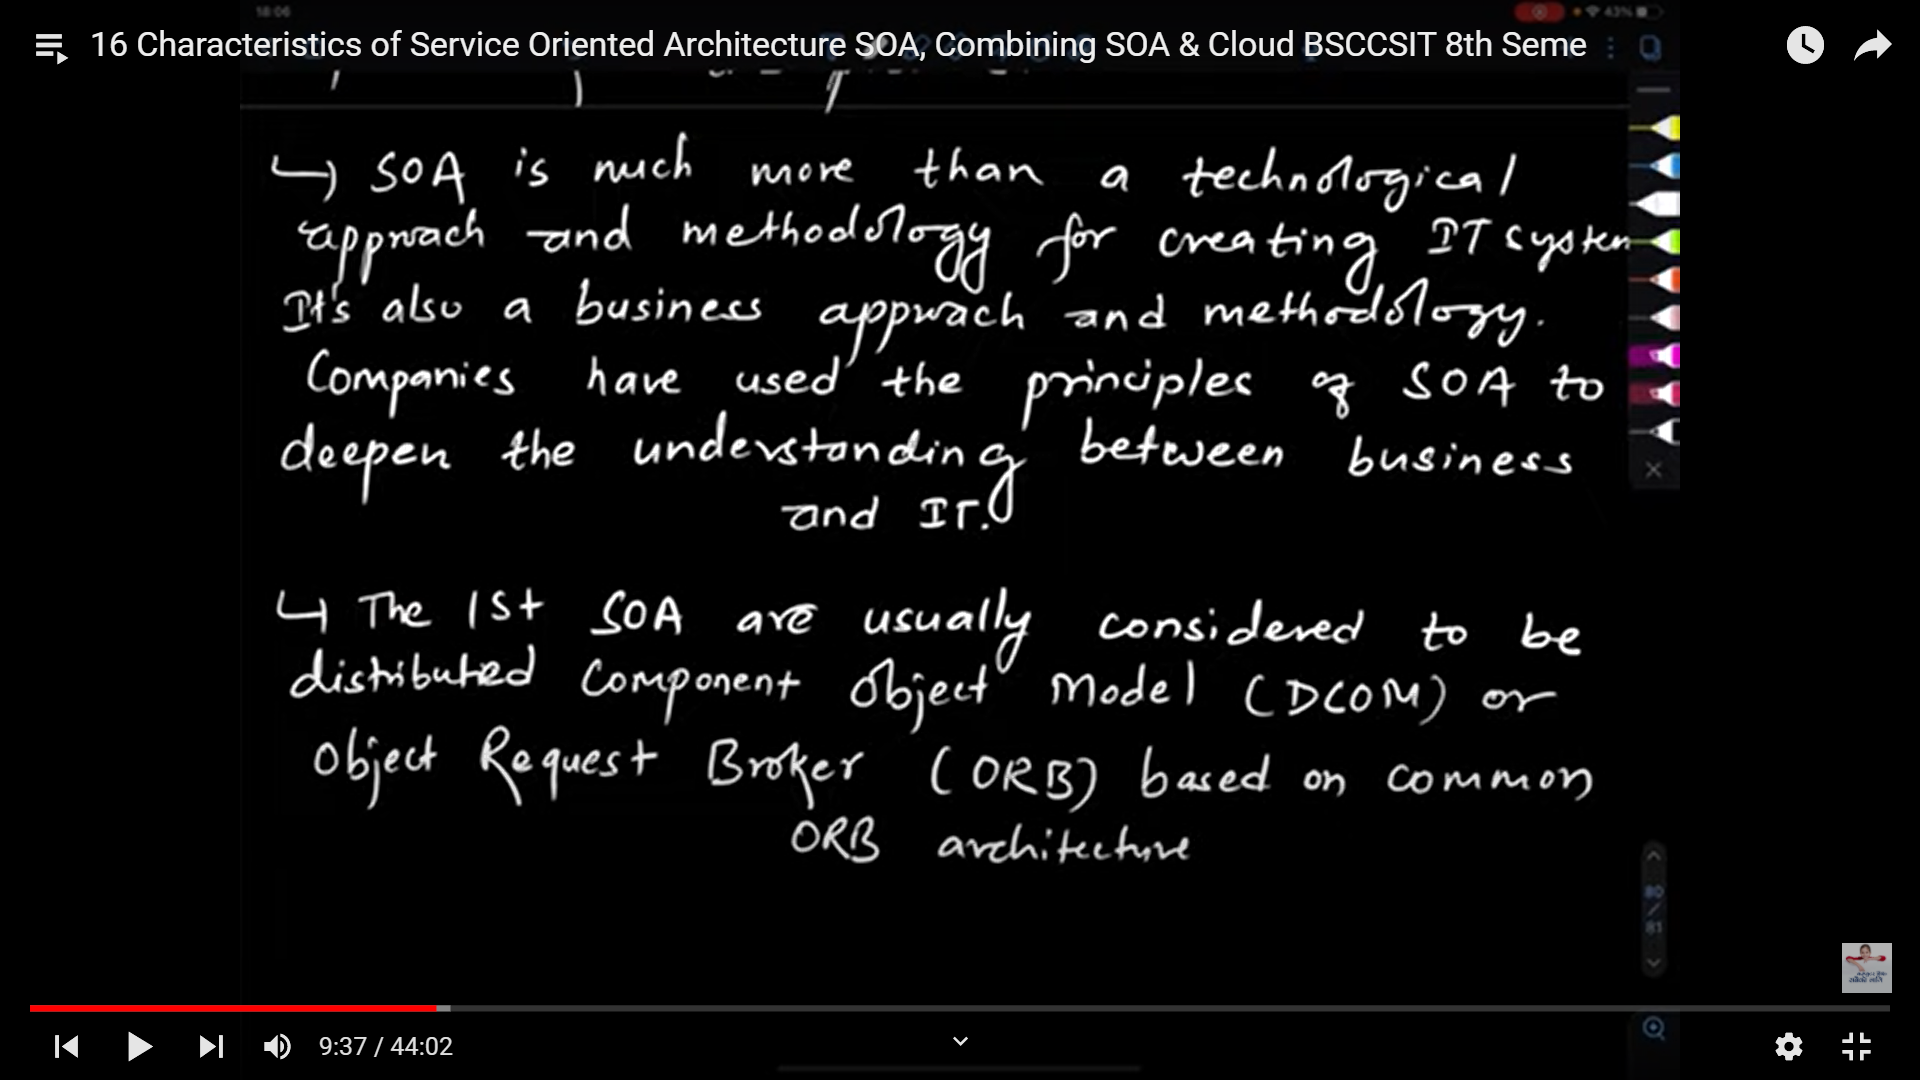 18:06
43%
16 Characteristics of Service Oriented Architecture SOA, Combining SOA & Cloud BSCCSIT 8th Seme
↳ SOA is much more than a technological
approach and methodology for creating IT system
It's also a business approach and methodology.
Companies have used the principles of SOA to
deepen the understanding between business
and IT.
↳ The 1st SOA are usually considered to be
distributed Component Object Model (DCOM) or
Object Request Broker (ORB) based on common
ORB architecture
80
/
81
9:37 / 44:02